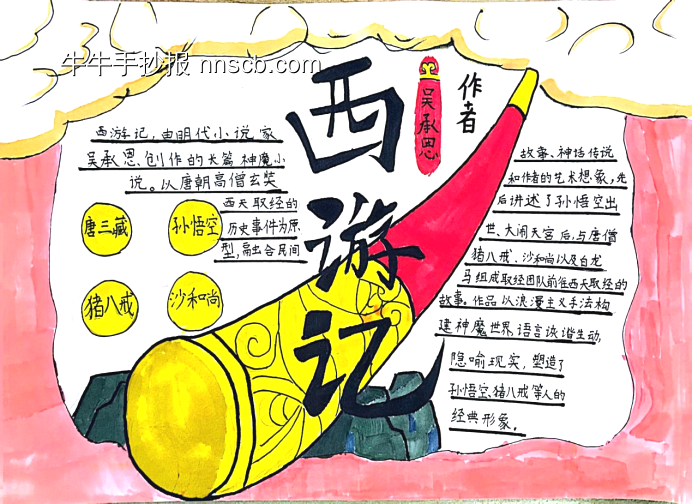 牛牛手抄报 nnscb.com
西游记
作者
吴承恩
西游记，由明代小说家
吴承恩创作的长篇神魔小
说。以唐朝高僧玄奘
西天取经的
历史事件为原
型，融合民间
唐三藏
孙悟空
猪八戒
沙和尚
故事、神话传说
和作者的艺术想象，先
后讲述了孙悟空出
世、大闹天宫后，与唐僧
猪八戒、沙和尚以及白龙
马组成取经团队前往西天取经的
故事。作品以浪漫主义手法构
建神魔世界，语言诙谐生动，
隐喻现实，塑造了
孙悟空、猪八戒等人的
经典形象。